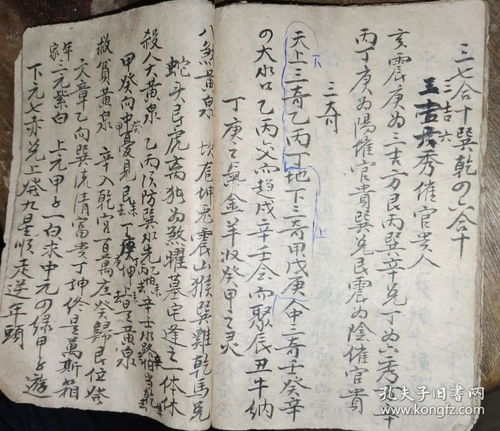 三七合十巽乾四六合十
三吉六
三吉六秀催官貴人
亥震庚为三吉方艮丙巽辛兑丁为六秀
丙丁庚为陽催官貴巽兑艮震为陰催官貴
三奇
天上三奇乙丙丁地下三奇甲戊庚人中三奇壬癸辛
四大水口乙丙交而趨戌辛壬会而聚辰丑牛納
丁庚之氣金羊收癸甲之灵
八煞黄泉 坎龙坤兔震山猴巽雞乾馬兑
蛇头艮虎离猪为煞曜墓宅逢之一体休
殺人大黄泉 乙丙须防巽水先
甲癸向中憂見艮 丁庚坤上是黄泉
救貧黄泉 辛入乾宫百萬庄癸歸艮位發
文章乙向巽流清富貴丁坤终是萬斯箱
年家三元紫白 上元甲子一白求中元四绿甲子遊
下元七赤兑上發九星順走逆年頭
孔夫子旧书网
www.kongfz.com